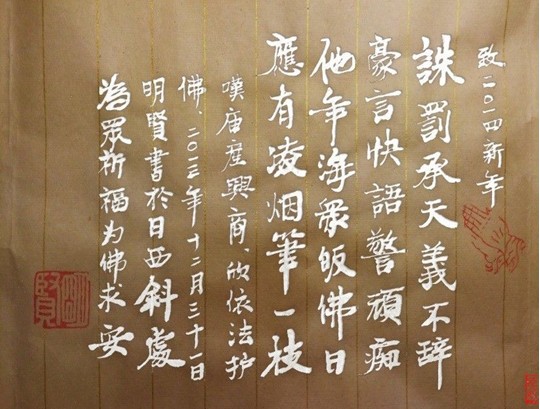 致二〇一四新年
誅罰承天義不辞
豪言快語警頑痴
他年海眾皈佛日
應有凌烟筆一枝
嘆庙産興商、欣依法护
佛、二〇一三年十二月三十一日
明賢書於日西斜處
為眾祈福为佛求安
明賢